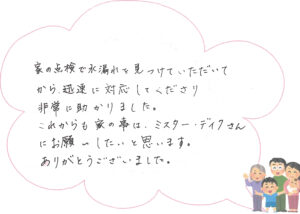 家の点検で水漏れを見つけていただいて
から、迅速に対応してくださり
非常に助かりました。
これからも家の事は、ミスター・デイクさん
にお願いしたいと思います。
ありがとうございました。